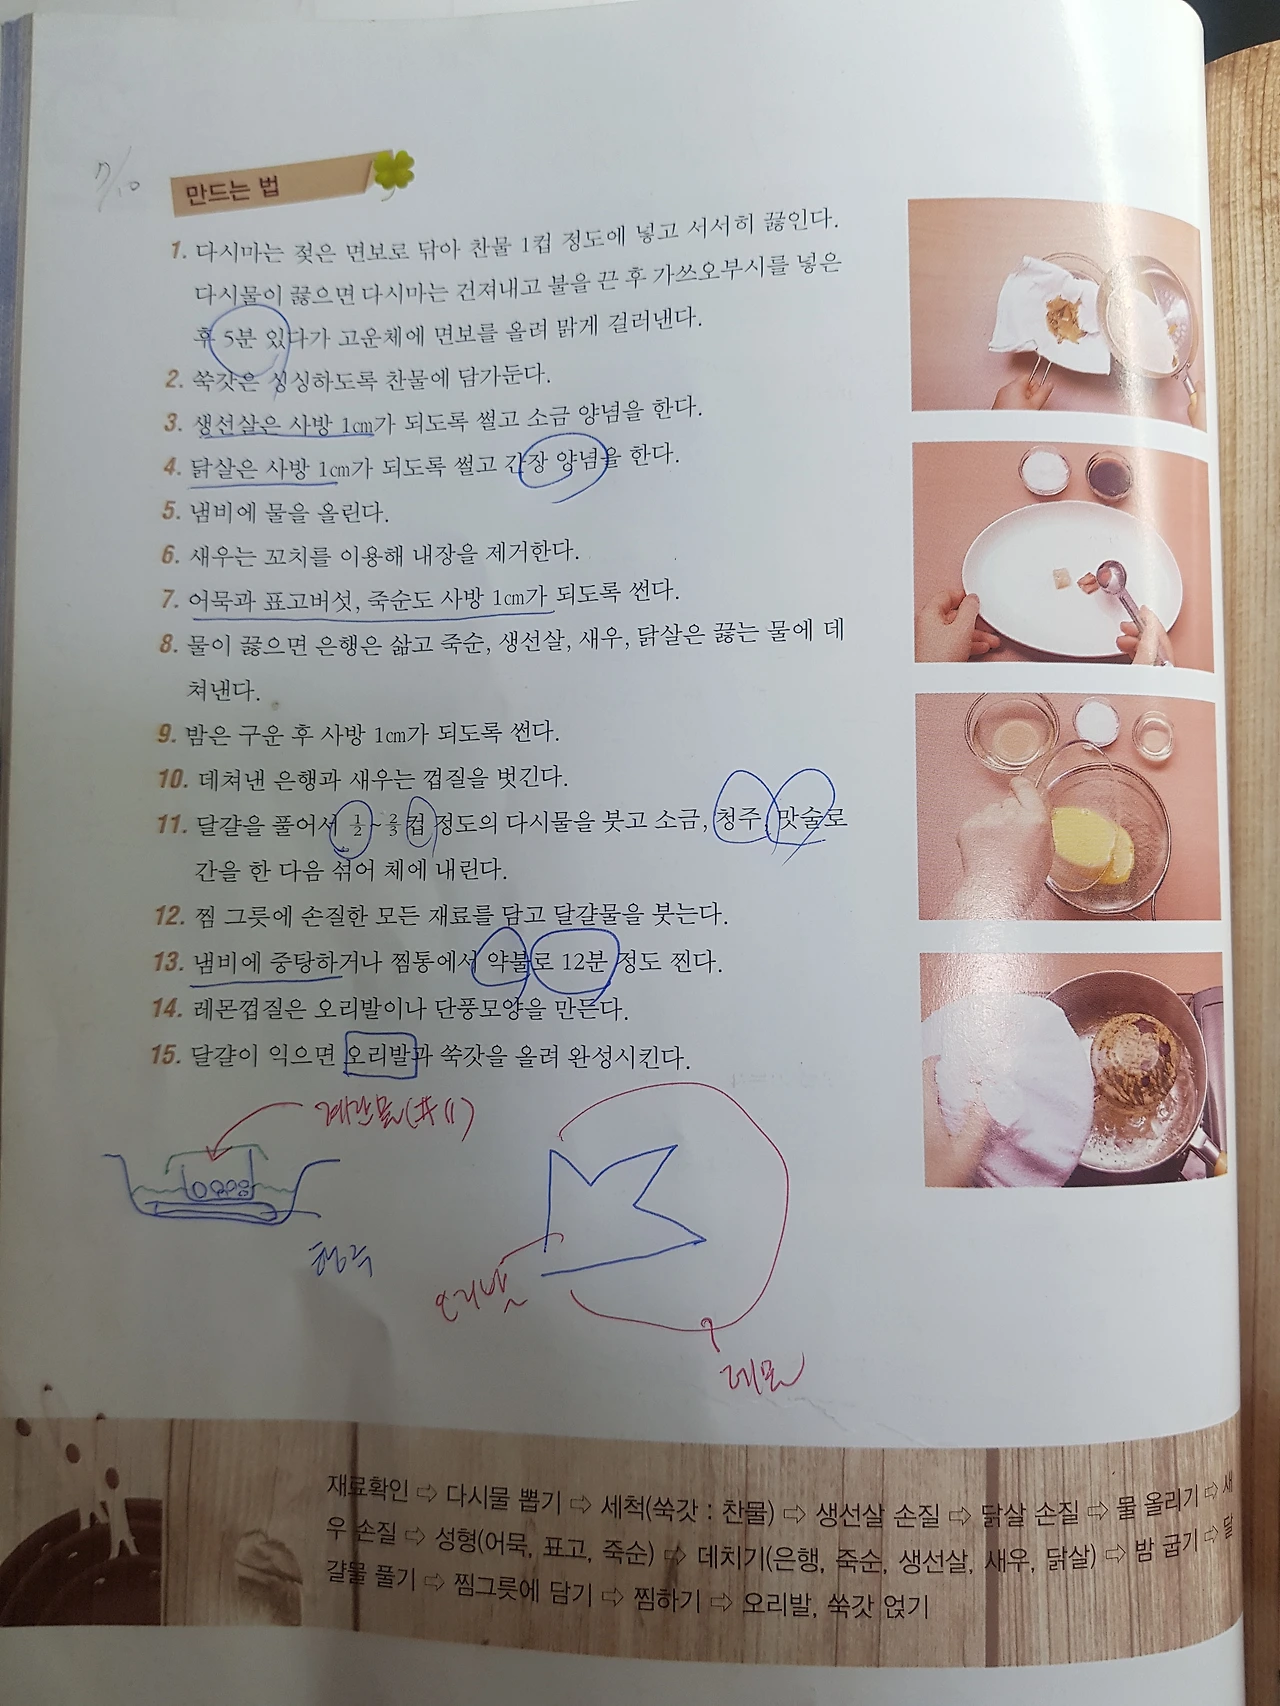 7/10
만드는 법
1. 다시마는 젖은 면보로 닦아 찬물 1컵 정도에 넣고 서서히 끓인다.
다시물이 끓으면 다시마는 건져내고 불을 끈 후 가쓰오부시를 넣은
후 5분 있다가 고운체에 면보를 올려 맑게 걸러낸다.
2. 쑥갓은 싱싱하도록 찬물에 담가둔다.
3. 생선살은 사방 1㎝가 되도록 썰고 소금 양념을 한다.
4. 닭살은 사방 1㎝가 되도록 썰고 간장 양념을 한다.
5. 냄비에 물을 올린다.
6. 새우는 꼬치를 이용해 내장을 제거한다.
7. 어묵과 표고버섯, 죽순도 사방 1㎝가 되도록 썬다.
8. 물이 끓으면 은행은 삶고 죽순, 생선살, 새우, 닭살은 끓는 물에 데
쳐낸다.
9. 밤은 구운 후 사방 1㎝가 되도록 썬다.
10. 데쳐낸 은행과 새우는 껍질을 벗긴다.
11. 달걀을 풀어서 ½~⅔컵 정도의 다시물을 붓고 소금, 청주, 맛술로
간을 한 다음 섞어 체에 내린다.
12. 찜 그릇에 손질한 모든 재료를 담고 달걀물을 붓는다.
13. 냄비에 중탕하거나 찜통에서 약불로 12분 정도 찐다.
14. 레몬껍질은 오리발이나 단풍모양을 만든다.
15. 달걀이 익으면 오리발과 쑥갓을 올려 완성시킨다.
계란물(#11)
행주
오리발
레몬
재료확인 ⇨ 다시물 뽑기 ⇨ 세척(쑥갓 : 찬물) ⇨ 생선살 손질 ⇨ 닭살 손질 ⇨ 물 올리기 ⇨ 새
우 손질 ⇨ 성형(어묵, 표고, 죽순) ⇨ 데치기(은행, 죽순, 생선살, 새우, 닭살) ⇨ 밤 굽기 ⇨ 달
걀물 풀기 ⇨ 찜그릇에 담기 ⇨ 찜하기 ⇨ 오리발, 쑥갓 얹기